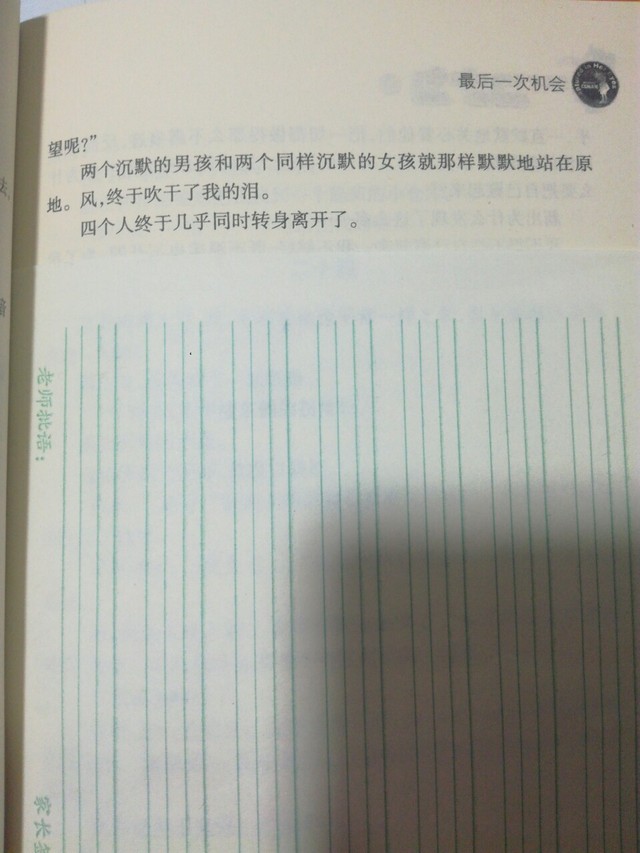 最后一次机会
望呢?”
两个沉默的男孩和两个同样沉默的女孩就那样默默地站在原
地。风,终于吹干了我的泪。
四个人终于几乎同时转身离开了。
老师批语:
家长